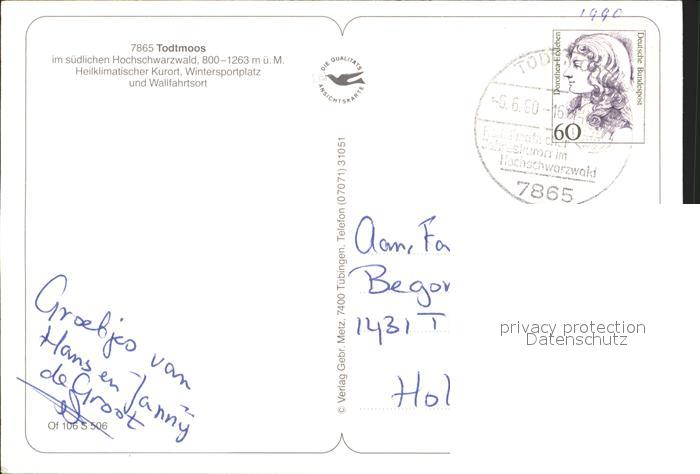 1990
7865 Todtmoos
im südlichen Hochschwarzwald, 800–1263 m ü. M.
Heilklimatischer Kurort, Wintersportplatz
und Wallfahrtsort
DIE QUALITÄTS
ANSICHTSKARTE
Dorothea Erxleben
Deutsche Bundespost
60
TODT
-6.6.90-16
Hochschwarzwald
7865
© Verlag Gebr. Metz, 7400 Tübingen, Telefon (07071) 31051
Aan, Fa
Begon
1431 T
Hol
Groetjes van
Hans en Janny
de Groot
Of 106 S 506
privacy protection
Datenschutz